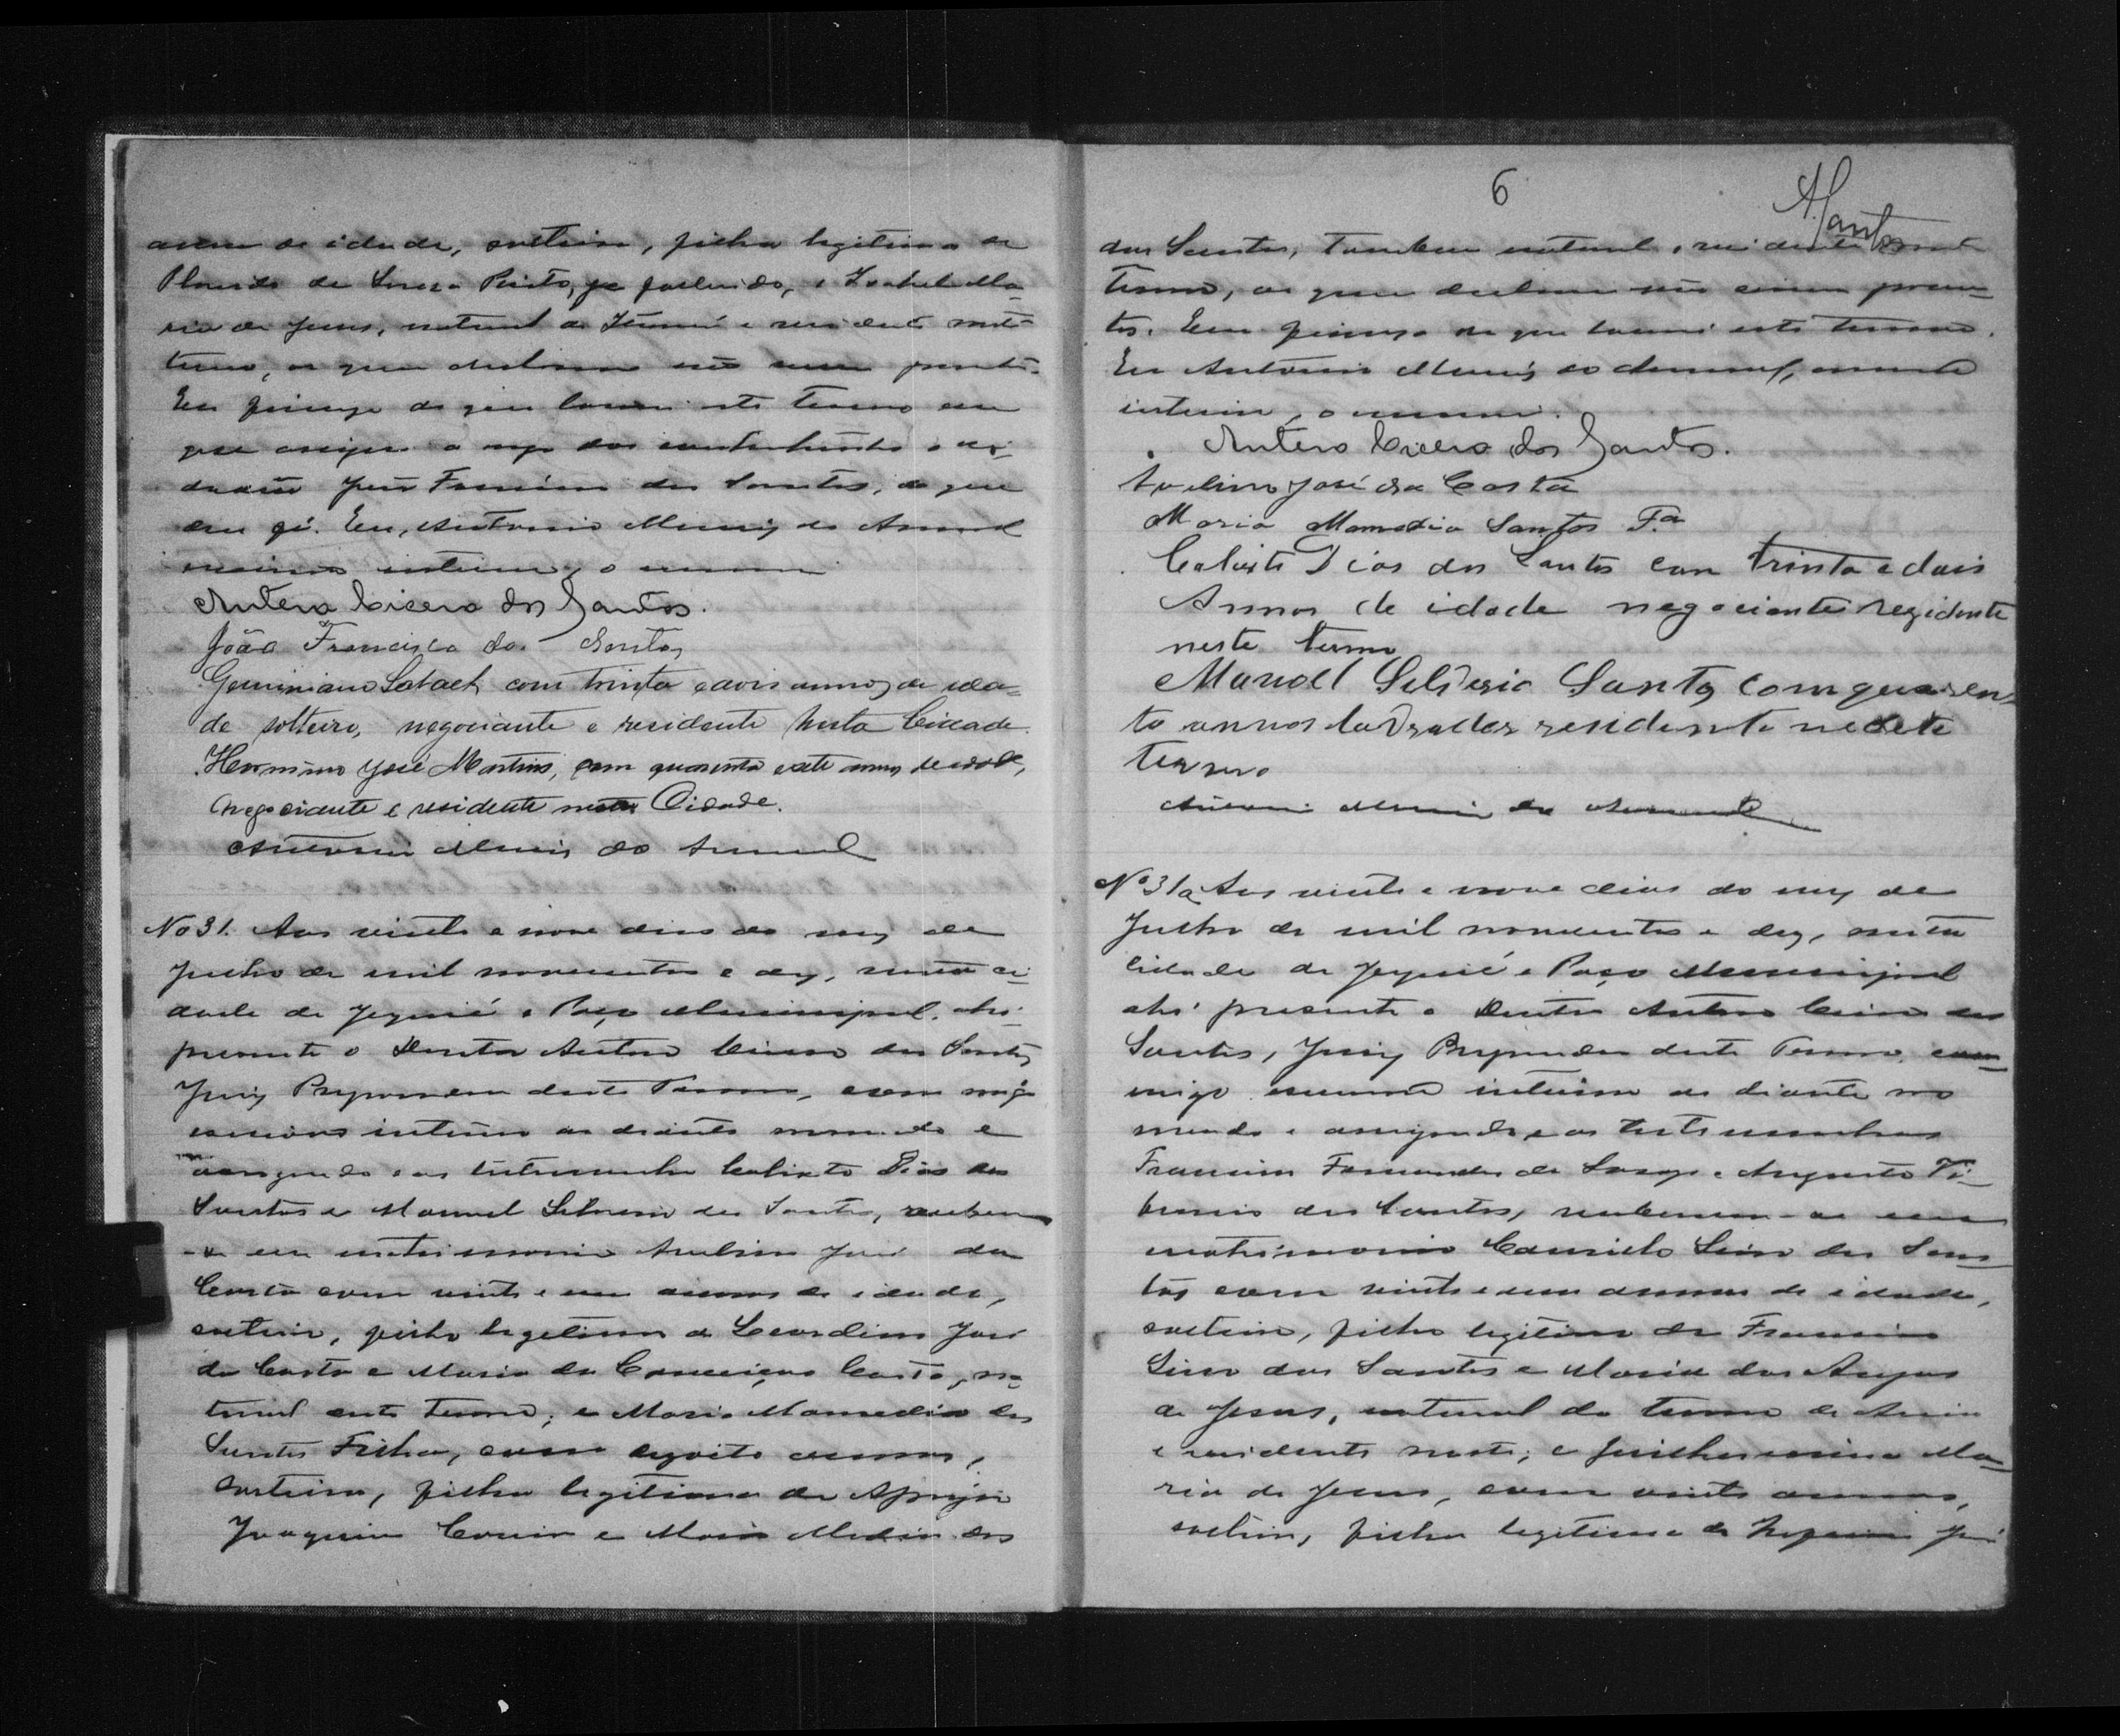 annos de idade, solteira, filha legitima de
Placido de Souza Pinto, ja fallecido, e Izabel Ma-
ria de Jesus, natural de e residente neste
termo, os quaes declaram não serem parentes.
Em firmeza do que lavrei este termo em
que assigna a rogo dos contrahentes o ci-
dadão João Francisco dos Santos, do que
dou fé. Eu, Antonio Muniz do Amaral
escrivão interino, o escrevi
Antero Cicero dos Santos.
João Francisco dos Santos
Geminiano com trinta e dois annos de ida-
de solteiro, negociante e residente nesta Cidade.
Hermino José Martins, com quarenta e sete annos de idade,
negociante e residente nesta Cidade.
Antonio Muniz do Amaral
No 31. Aos vinte e nove dias do mez de
Julho de mil novecentos e dez, nesta ci-
dade de Jequié e Paço Municipal, ahi
presente o Doutor Antero Cicero dos Santos,
Juiz Preparador deste Termo, comigo
escrivão interino ao diante nomeado e
assignado e as testemunhas Calixto Dias dos
Santos e Manoel Silverio dos Santos, receberam
-se em matrimonio Avelino José da
Costa com vinte e um annos de idade,
solteiro, filho legitimo de José
da Costa e Maria da Conceição Costa, na-
tural deste termo; e Maria Mamedia dos
Santos Filha, com dezoito annos,
solteira, filha legitima de Aprigio
Joaquim e Maria dos
6
ASantos
dos Santos, tambem natural e residente neste
termo, os quaes declaram não serem paren-
tes. Em firmeza do que lavrei este termo.
Eu Antonio Muniz do Amaral, escrivão
interino, o escrevi.
Antero Cicero dos Santos.
Avelino José da Costa
Maria Mamedia Santos Fa
Calixto Dias dos Santos com trinta e dois
Annos de idade negociante rezidente
neste termo
Manoel Silverio Santos com quaren-
ta annos lavrador residente neste
termo
Antonio Muniz do Amaral
No 31a Aos vinte e nove dias do mez de
Julho de mil novecentos e dez, nesta
cidade de Jequié e Paço Municipal
ahi presente o Doutor Antero Cicero dos
Santos, Juiz Preparador deste Termo, com-
migo escrivão interino ao diante no-
meado e assignado e as testemunhas
Francisco Fernandes de e Augusto Ti-
burcio dos Santos, receberam-se em
matrimonio Lino dos San-
tos com vinte e um annos de idade,
solteiro, filho legitimo de Francisco
Lino dos Santos e Maria dos Anjos
de Jesus, natural do termo de Areia
e residente neste; e Guilhermina Ma-
ria de Jesus, com vinte annos,
solteira, filha legitima de José